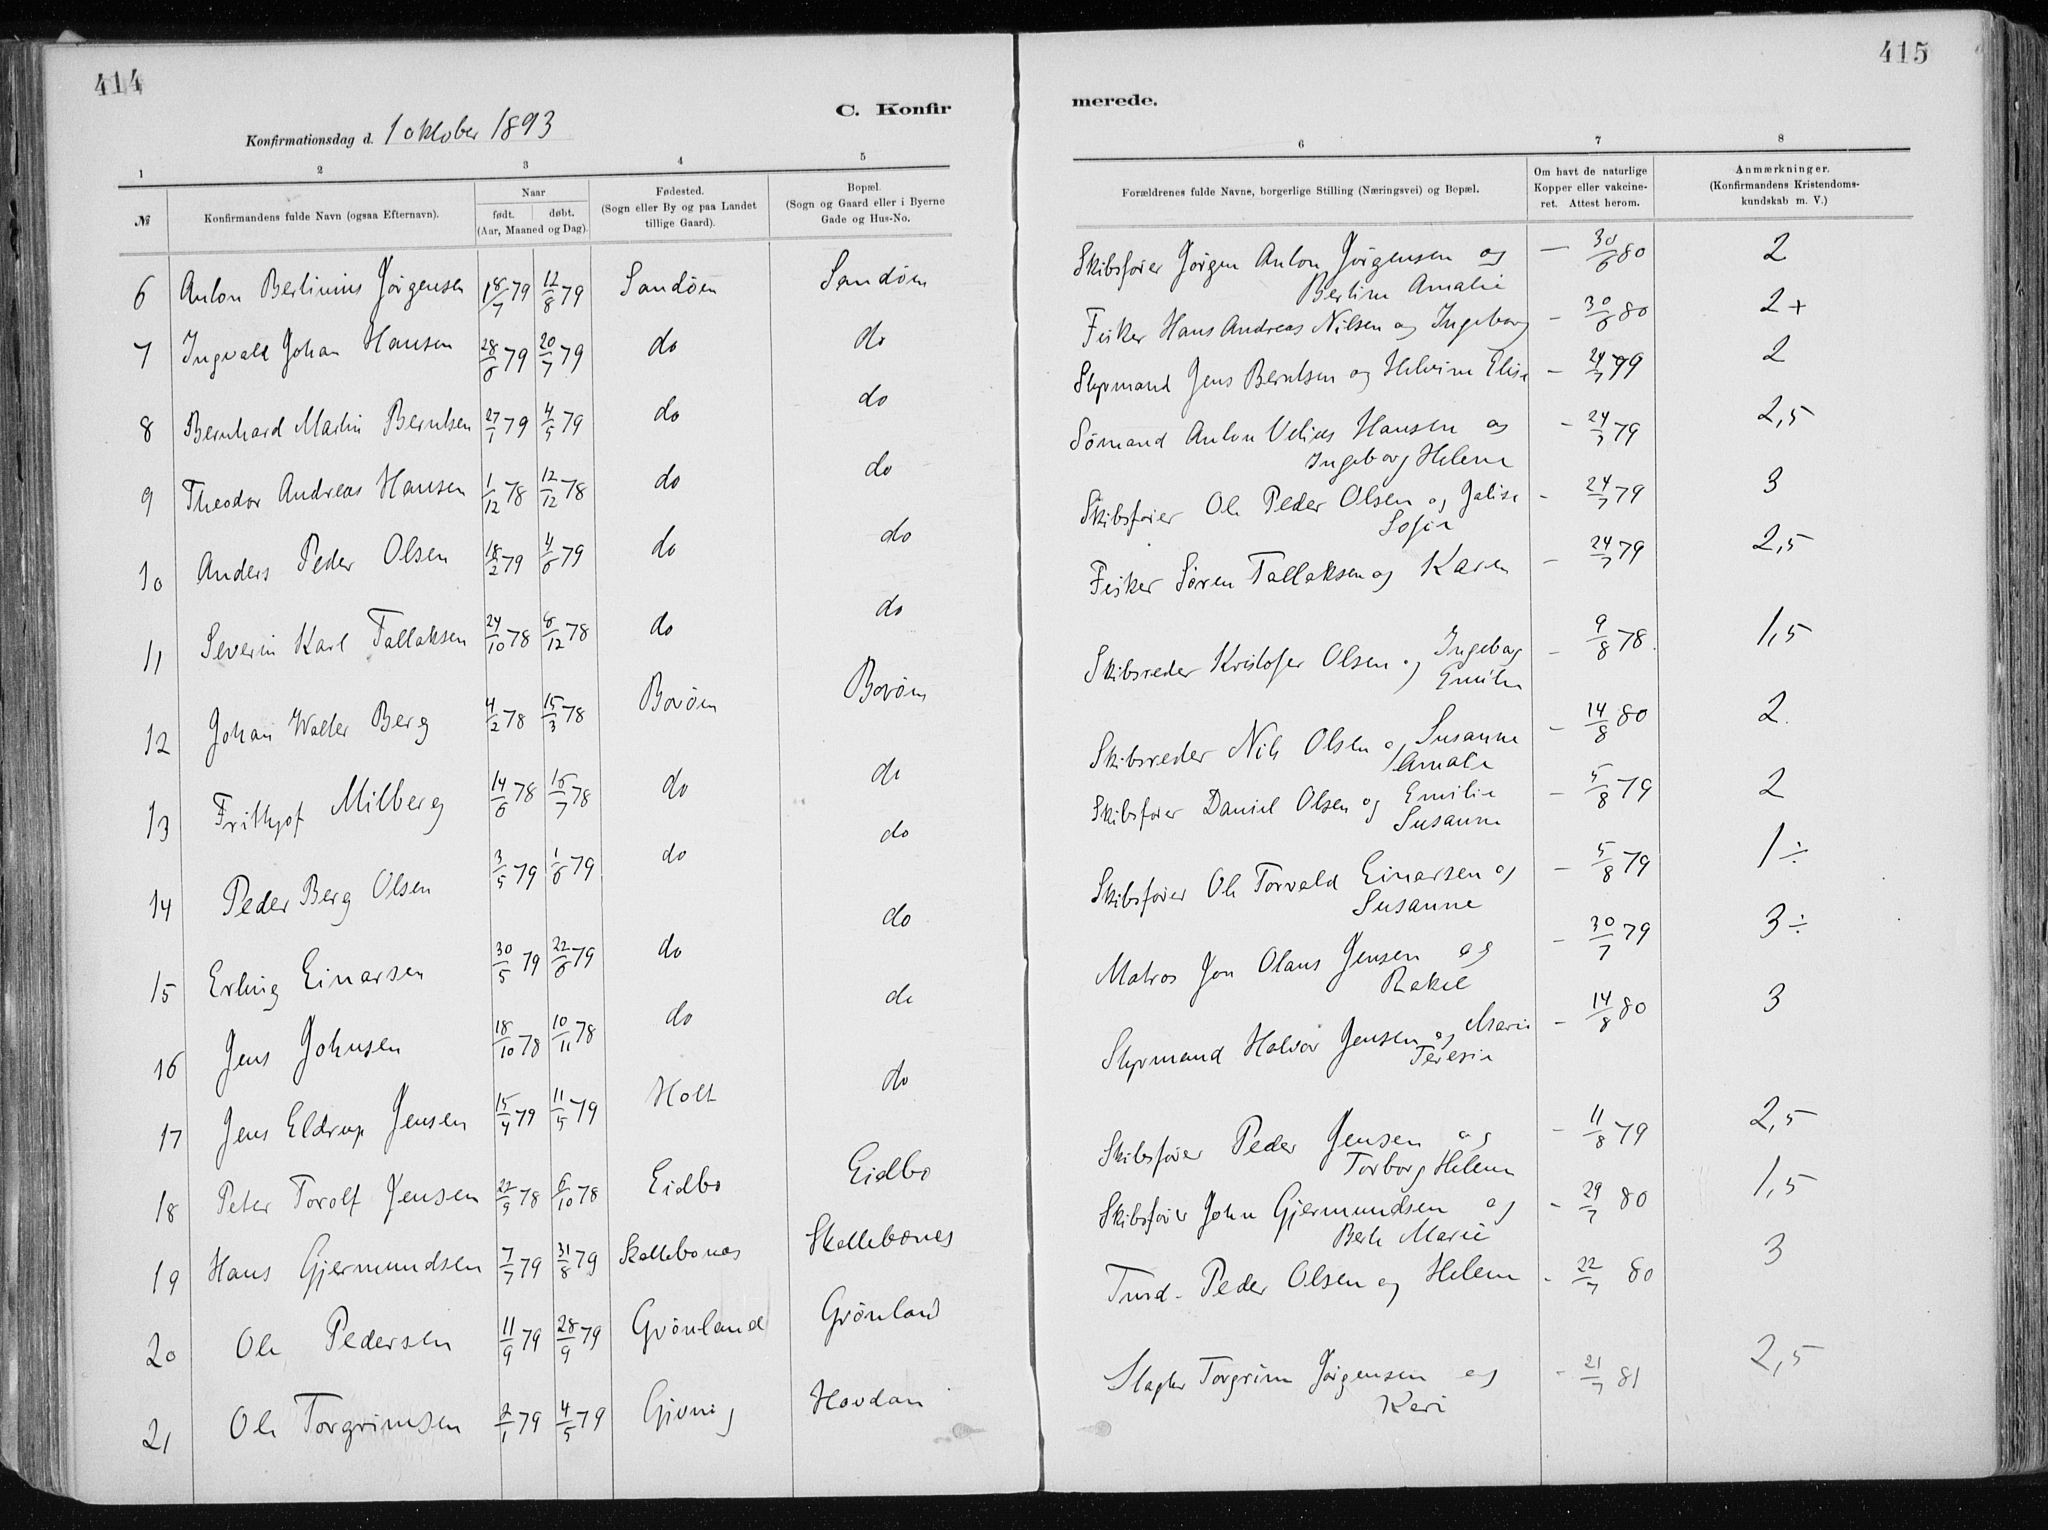 414
C. Konfir
Konfirmationsdag d. 1 oktober 1893
1 2 3 4 5
№ Konfirmandens fulde Navn (ogsaa Efternavn). Naar født. døbt. (Aar, Maaned og Dag). Fødested. (Sogn eller By og paa Landet tillige Gaard). Bopæl. (Sogn og Gaard eller i Byerne Gade og Hus-No.
6 Anton Bertinius Jørgensen 18/7 79 12/8 79 Sandøen Sandøen
7 Ingvald Johan Hansen 28/6 79 20/7 79 do do
8 Bernhard Martin Berntsen 27/1 79 4/5 79 do do
9 Theodor Andreas Hansen 1/12 78 12/12 78 do do
10 Anders Peder Olsen 18/2 79 4/6 79 do do
11 Severin Karl Tallaksen 24/10 78 8/12 78 do do
12 Johan Walter Berg 4/2 78 15/3 78 Borøen Borøen
13 Frithjof Milberg 14/6 78 16/7 78 do do
14 Peder Berg Olsen 3/5 79 1/6 79 do do
15 Erling Einarsen 30/5 79 22/6 79 do do
16 Jens Johnsen 18/10 78 10/11 78 do do
17 Jens Eldrup Jensen 15/4 79 11/5 79 Holt do
18 Peter Torolf Jensen 22/9 78 6/10 78 Eidbo Eidbo
19 Hans Gjermundsen 7/7 79 31/8 79 Skjellebones Skjellebones
20 Ole Pedersen 11/9 79 28/9 79 Grønland Grønland
21 Ole Torgrimsen 2/1 79 4/5 79 Gjeving Hovdan
415
merede.
6 7 8
Forældrenes fulde Navne, borgerlige Stilling (Næringsvei) og Bopæl. Om havt de naturlige Kopper eller vakcineret. Attest herom. Anmærkninger. (Konfirmandens Kristendomskundskab m. V.)
Skibsfører Jørgen Anton Jørgensen og — 30/6 80 2
Bertine Amalie
Fisker Hans Andreas Nilsen og Ingeborg - 30/6 80 2+
Styrmand Jens Berntsen og Helvine Elise - 24/7 79 2
Sømand Anton Velius Hansen og - 24/7 79 2,5
Ingeborg Helene
Skibsfører Ole Peder Olsen og Jalise - 24/7 79 3
Sofie
Fisker Søren Tallaksen og Karen - 24/7 79 2,5
Skibsreder Kristofer Olsen og Ingeborg - 9/8 78. 1,5
Emilie
Skibsreder Nils Olsen og Susanne - 14/8 80 2.
Amalie
Skibsfører Daniel Olsen og Emilie - 5/8 79 2
Susanne
Skibsfører Ole Torvald Einarsen og - 5/8 79 1÷
Susanne
Matros Jon Olaus Jensen og - 30/7 79 3÷
Rakel
Styrmand Halvor Jensen og Marie - 14/8 80 3
Teresie
Skibsfører Peder Jensen og - 11/8 79 2,5
Torborg Helene
Skibsfører John Gjermundsen og - 29/7 80 1,5
Berte Marie
Tmd. Peder Olsen og Helene - 22/7 80 3
Slagter Torgrim Jørgensen og - 21/7 81 2,5
Kari